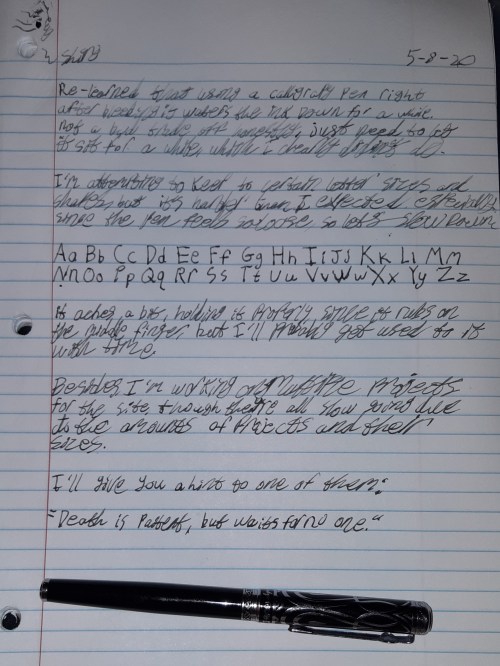 5-8-20
Re-learned that using a caligrahy Pen right
after it waters the ink Down for a while.
Not a bad trade off honestly, just need to let
it sit for a while, which I clearly didn't do.
I'm attempting to keep to certain letter sizes and
shapes, but it's harder than I expected especially
since the Pen feels so loose, so let's slow Down.
Aa Bb Cc Dd Ee Ff Gg Hh Ii Jj Kk Ll Mm
Nn Oo Pp Qq Rr Ss Tt Uu Vv Ww Xx Yy Zz
It aches a bit, holding it Properly since it rubs on
the middle finger, but I'll Probably get used to it
with time.
Besides I'm working on Multiple Projects
for the site, though they're all slow going due
to the amounts of Projects and their
sizes.
I'll give you a hint to one of them:
"Death is Patient, but waits for no one."